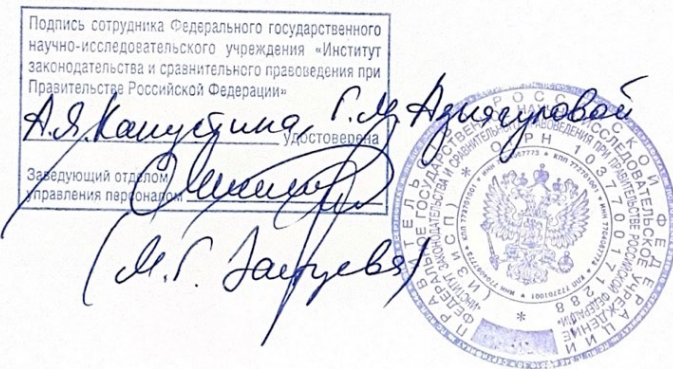 Подпись сотрудника Федерального государственного
научно-исследовательского учреждения «Институт
законодательства и сравнительного правоведения при
Правительстве Российской Федерации»
А.Я. Капустина, Г.М. Азнагуловой
удостоверена
Заведующий отделом
управления персоналом
(М.Г. Зайцева)
ПРАВИТЕЛЬСТВО РОССИЙСКОЙ ФЕДЕРАЦИИ
ФЕДЕРАЛЬНОЕ ГОСУДАРСТВЕННОЕ НАУЧНО-ИССЛЕДОВАТЕЛЬСКОЕ УЧРЕЖДЕНИЕ
«ИНСТИТУТ ЗАКОНОДАТЕЛЬСТВА И СРАВНИТЕЛЬНОГО ПРАВОВЕДЕНИЯ ПРИ ПРАВИТЕЛЬСТВЕ РОССИЙСКОЙ ФЕДЕРАЦИИ»
(ИЗиСП) * ОГРН